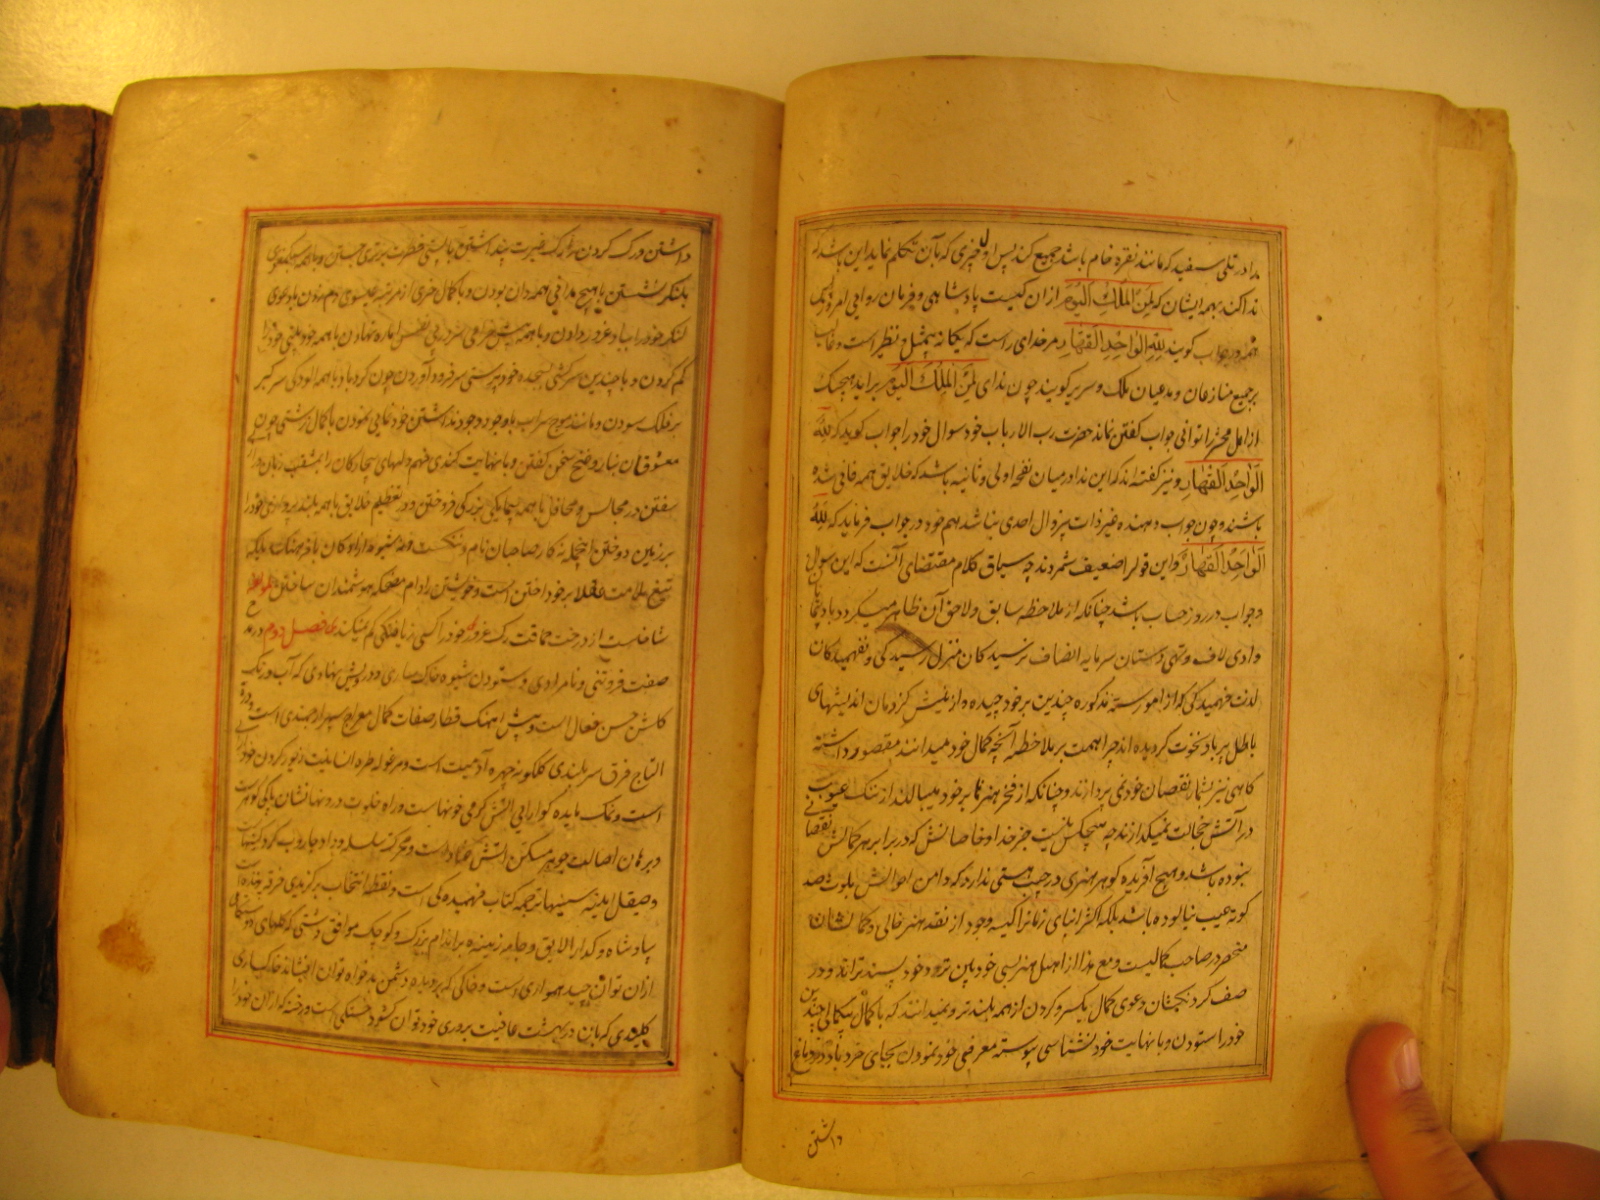 مدادر تلی سفید که مانند نقره خام باشد جمیع کند پس اول چیزی که بآن تکلم نماید این باشد که
ندا کند بهمه ایشان که لِمَنِ المُلکُ الیَومَ از ان کیست پادشاهی و فرمان روایی امروز
همه در جواب گویند لِلّٰهِ الوَاحِدِ القَهَّارِ مر خدای راست که یکانه بیمثل و نظیر است و غالب
بر جمیع منازعان و مدعیان ملک و سریر گویند چون ندای لِمَنِ المُلکُ الیَومَ براید هیچیک
از اهل محشر را توانی جواب گفتن نماند حضرت رب الارباب خود سوال خود را جواب گوید که لِلّٰهِ
الوَاحِدِ القَهَّارِ و نیز گفته اند که این ندا در میان نفحه اولی و ثانیه باشد که خلایق همه فانی شده
باشند و چون جواب دهنده غیر ذات بیزوال احدی نباشد هم خود در جواب فرماید که لِلّٰهِ
الوَاحِدِ القَهَّارِ و این قول را ضعیف شمردند چه سیاق کلام مقتضای آنست که این سوال
و جواب در روز حساب باشد چنانکه از ملاحظه سابق و لاحق آن ظاهر میکردد
وادی لاف و تهی دستان سرمایه انصاف نرسیدکان منزل رسیدگی و نفهمیدکان
لذت فهمیدگی که از امور سته مذکوره چندین بر خود چیده و از نیش کزدمان اندیشهای
باطل پر باد نخوت کردیده اند چرا همت بر ملاحظه آنچه کمال خود میدانند مقصور داشته
کاهی نیز بشمار نقصان خود نمی پردازند و چنانکه از فخر هنر نما بر خود میبالند از ننک عیوب
در آتش خجالت نمیکدازند چه هیچکس نیست جز خدا و خاصانش که در برابر هر کمالش نقصانی
نبوده باشد و هیچ آفریده گوهر هنری در جیب هستی ندارد که دامن احوالش بلوث صد
گونه عیب نیالوده باشد بلکه اکثر ابنای زمانرا کیسه وجود از نقد هنر خالی و کمالشان
منحصر در صاحب کمالیست و مع هذا از اهل هنر بسی خود بین تر و خود پسندتر اند و در
صف کردنکشان دعوی کمال یکسر و کردن از همه بلندتر و نمیدانند که با کمال بیکمالی چندین
خود را ستودن و با نهایت خود نشناسی پیوسته معرفی خود نمودن بجای خرد باد در دماغ
داشتن
داشتن و رک کردن را رک غیرت پنداشتن با پستی فطرت برتری جستن و با همه
بلنکر نشستن با هیچ مدانی همه دان بودن و با کمال خری از مرتبه عیسوی دم زدن باد دعوی
لنکر خود را بباد غرور دادن و با همه نفس اماره تهاون با همه خود بینی خود را
کم کردن و با چندین سرکشی بسجده خود پرستی سر فرود آوردن چون کرد باد با همه آلودگی سر کبر
بر فلک سودن و مانند موج سراب با وجود وجود نداشتن خود نمایی نمودن با کمال زشتی چون
معشوقان بناز و غنج سخن گفتن و با نهایت کندی فهم دلهای بیچارکان را بمثقب زبان درازی
سفتن در مجالس و محافل با همه بیمایگی بزرگی فروختن و در تعظیم خلایق با همه بلند پروازی خود را
بر زمین دوختن اینجمله نه کار صاحبان نام و ننکست و نه شیوه ازادکان با فرهنک بلکه
تیغ ملامت عقلا بر خود اختن است و خویشتن را دام مضحکه هوشمندان ساختن
شاخیست از درخت حماقت رک غرور خود را کسی ز یافتگی کم نمیکند فصل دوم در مدح
صفت فروتنی و نامرادی و ستودن شیوه خاکساری و درویش نهادی که آب و رنک
کلشن حسن فعال است و پیش اهنک قطار صفات کمال معراج سپهر ارجمندی است و درة
التاج فرق سربلندی گلگونه چهره آدمیت است و مرغوله طره انسانیت زیور کردن خود
است و نمک مایده کوارایی آتش گرمی خونهاست و راه خلوت درونها نشان پاکی گوهر
و برهان اصالت جوهر مسکن آتش عناد است و محرک سلسله وداد جاروب کرد کینها
و صیقل آینه سینها ترجمه کتاب فهمیدگی است و نقطه انتخاب برگزیدی
پادشاه و گدا را لایق و جامه زیبنده بر اندام بزرگ و کوچک موافق دشتی که گلهای
ازان توان چید همواری است و خاکی که بر دیده دشمن بدخواه توان افشاند خاکساری
کلیدی که بان در بهشت عافیت بروی خود توان کشود خستگی است و رخنه که ازان خود را